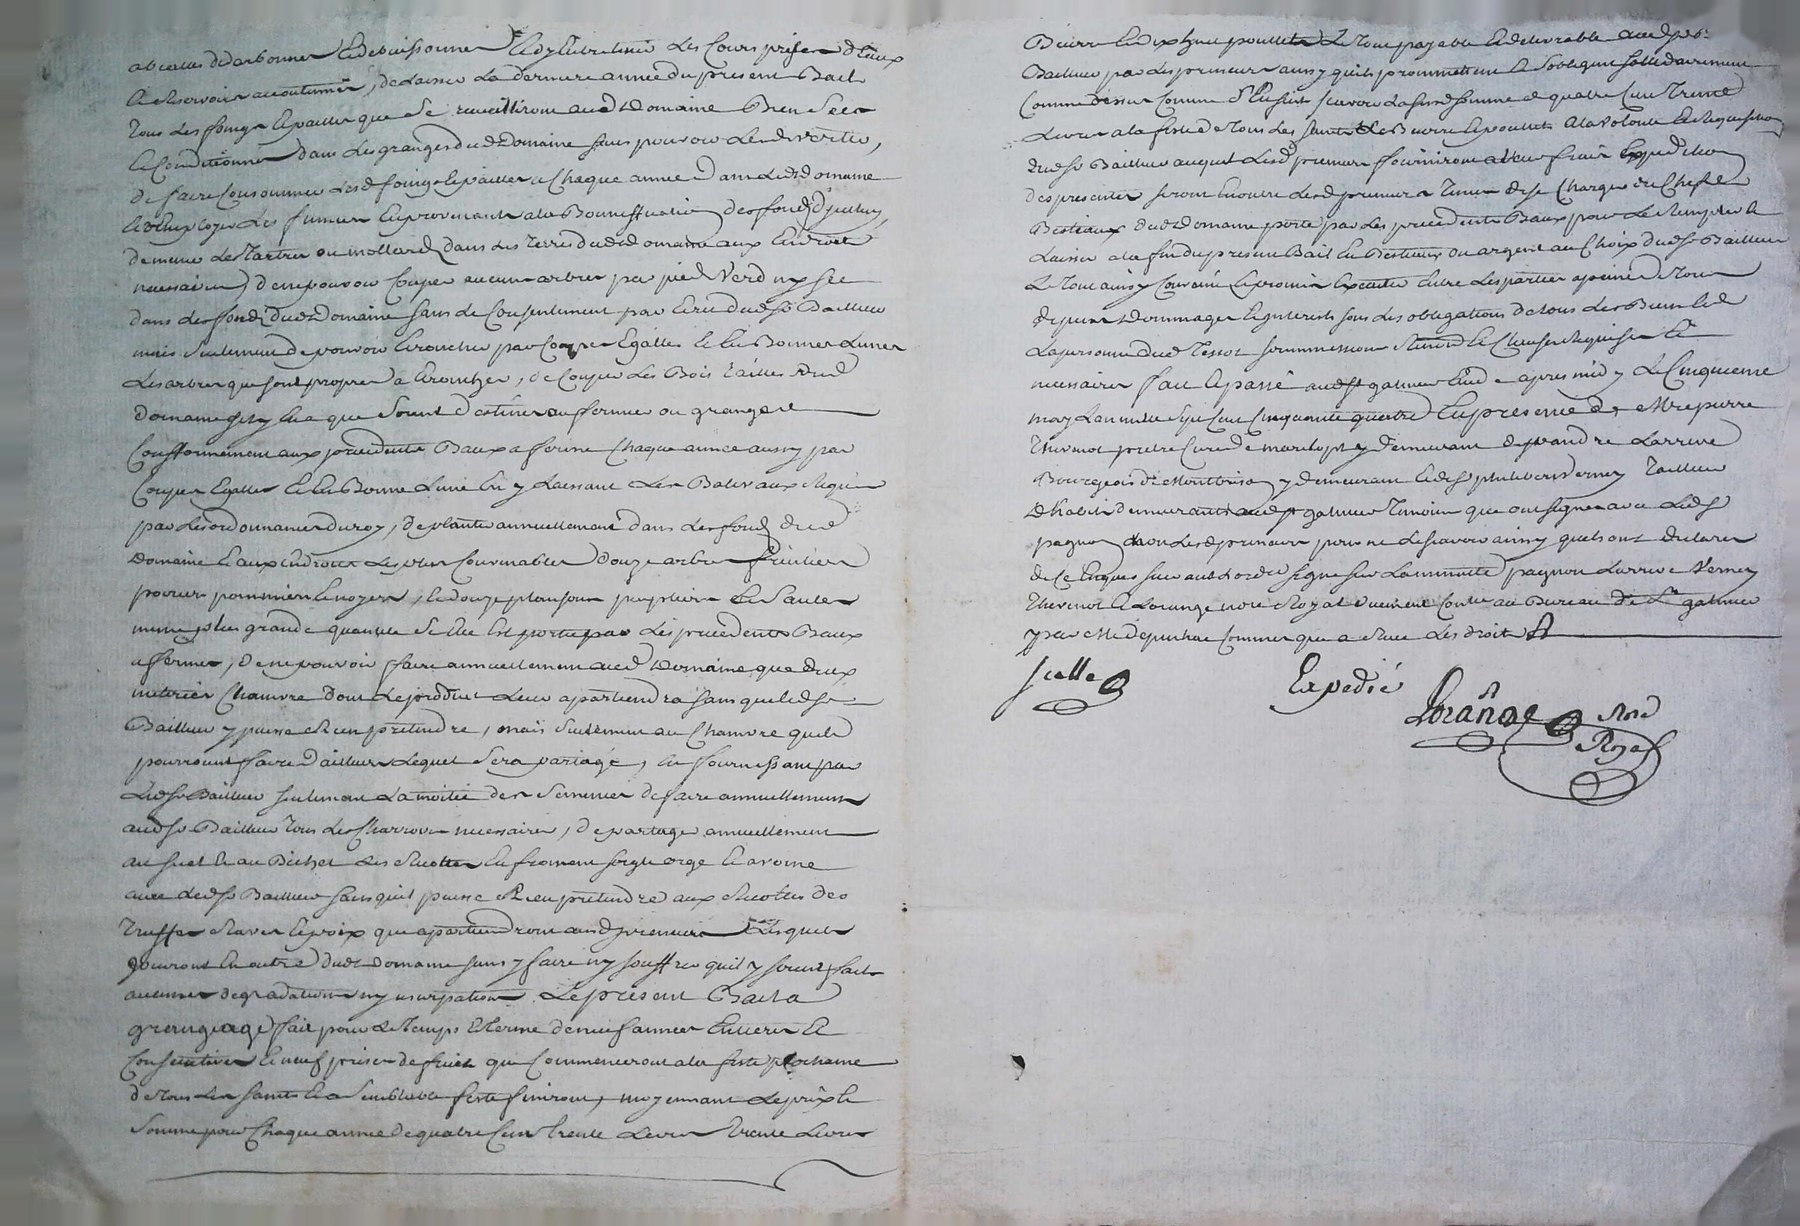 abcettes dedarbonner Edebuissonner Et dy Entretenir Les Cours prises d'Eaux
Et Reservoirs accoutumés, de Laisser La derniere année du present Bail
Tous Les foings Epailles que Se recueilliront aud Domaine Bien Secs
Et Conditionnés dans Les granges dud Domaine sans pouvoir Les divertir,
de faire Consommer Lesd foings Epailles Chaque année dans Led Domaine
Et Employer Les fumiers En provenants a la Bonnification des fonds d'jceluy,
de meme Les Tartres ou mollards dans Les Terres dud Domaine aux Endroits
necessaires, de ne pouvoir Couper aucuns arbres par pied Verd ny Sec
dans Les fonds dud Domaine sans Le Consentement par Ecrit dud Sr Bailleur
mais Seulement de pouvoir Ebroncher par Coupes Egalles Et En Bonnes Lunes
Les arbres que sont propres a Ebroncher, de Couper Les Bois Taillis dud
Domaine Sil y En a que Soient destinés au fermier ou granger
Conformement aux precedents Baux a ferme Chaque année aussy par
Coupes Egalles Et En Bonne Lune En y Laissant Les Baliveaux Requis
par Les ordonnances du roy, de planter annuellement dans Les fonds dud
Domaine Et aux Endroits Les plus Convenables douze arbres fruitiers
poiriers pommiers Et noyers, Et douze plansons peupliers Et Saules
meme plus grande quantité Si Elle Est portée par Les precedents Baux
a fermes, de ne pouvoir faire annuellement aud Domaine que deux
meteries Chanvre dont Le produit Leur apartiendra sans que Led Sr
Bailleur y puisse Rien pretendre, mais Seulement au Chanvre quils
pourroient faire d'ailleurs Lequel Sera partagé, En fournissant par
Led Sr Bailleur seulement La moitié des Semences de faire annuellement
aud Sr Bailleur Tous Les Charrois necessaires, de partager annuellement
au Suel Et au Bichet Les Recoltes En froment seigle orge Et avoine
avec Led Sr Bailleur sans quil puisse Rien pretendre aux Recoltes des
Truffes Raves Epoix que apartiendront aud preneurs Lesquels
jouiront En outre dud Domaine sans y faire ny souffrir quil y soient faits
aucunes degradations ny usurpations. Le present Bail a
grangeage fait pour Le Temps Et Terme de neuf années Entieres Et
Consecutives Et neuf prises de fruits que Commenceront a la feste prochaine
de Tous Les Saints Et a Semblable feste finiront, moyennant Le prix Et
Somme pour Chaque année de quatre Cent Trente Livres Trente Livres
Beurre Et dix huit poullets Le Tout payable Et delivrable aud Sr
Bailleur par Les preneurs ainsy quils promettent Et Sobligent sollidairement
Comme dessus Comme S'Ensuit scavoir La susd somme de quatre Cent Trente
Livres a la feste de Tous Les Saints Et Le Beurre Epoullets a la Volonté Et Requisition
dud Sr Bailleur auquel Lesd preneurs fourniront a Leur frais Expedition
des presentes seront En outre Lesd preneurs Tenus de se Charger du Cheptel
Bestiaux dud Domaine porté par Les precedents Baux pour Le Remplir Et
Laisser a la fin du present Bail En Bestiaux ou argent au Choix dud Sr Bailleur
Le Tout ainsy Convenu Epromis Executer Entre Les parties apeine de Tous
depens Dommages Et jnterests sous Les obligations de tous Les Biens Et de
La personne dud Tessot soummissions Renond Et Clauses Requises Et
necessaires fait Epassé aud St galmier Etude apres midy Le Cinquieme
may L'an mille Sept Cent Cinquante quatre En presence de Mre pierre
Thevenot pretre Curé de marclopt y demeurant de jeandre Larrive
Bourgeois de Montbrison y demeurant Et de Sr philibert Verney Tailleur
d'habits demeurants aud St galmier Temoins que ont signé avec Led Sr
pagnon non Lesd preneurs pour ne Le scavoir ainsy quils ont declaré
de Ce Enquis suivant L'ordce signé sur La minutte pagnon Larrive Verney
Thevenot Et Lorange nore Royal duement Contre au Bureau de St galmier
par Mr depunhac Commis que a Receu Les droits
scelle
Expedié
Lorange nore
Royal